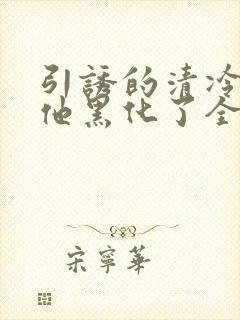 引誘的清冷
他黑化了全
宋寧華